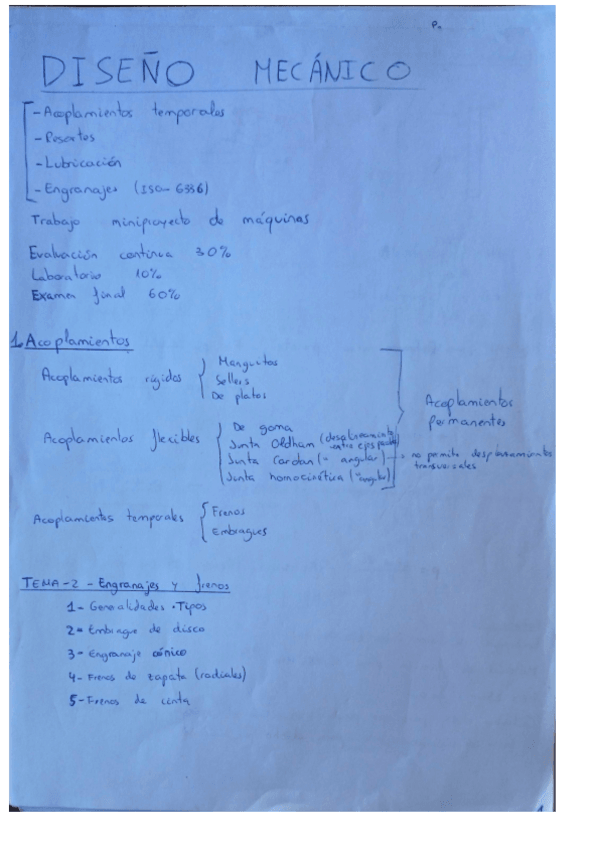 P.
DISEÑO MECÁNICO
- Acoplamientos temporales
- Resortes
- Lubricación
- Engranajes (ISO- 6336)
Trabajo miniproyecto de máquinas
Evaluación continua 30%
Laboratorio 10%
Examen final 60%
1. Acoplamientos
Acoplamientos rígidos
Manguitos
Sellers
De platos
Acoplamientos flexibles
De goma
Junta Oldham (desplazamiento entre ejes)
Junta Cardan (" angular) → no permite desplazamientos transversales
Junta homocinética (" angular)
Acoplamientos Permanentes
Acoplamientos temporales
Frenos
Embragues
TEMA-2 - Engranajes y frenos
1- Generalidades. Tipos
2- Embrague de disco
3- Engranaje cónico
4- Frenos de zapata (radiales)
5- Frenos de cinta
1